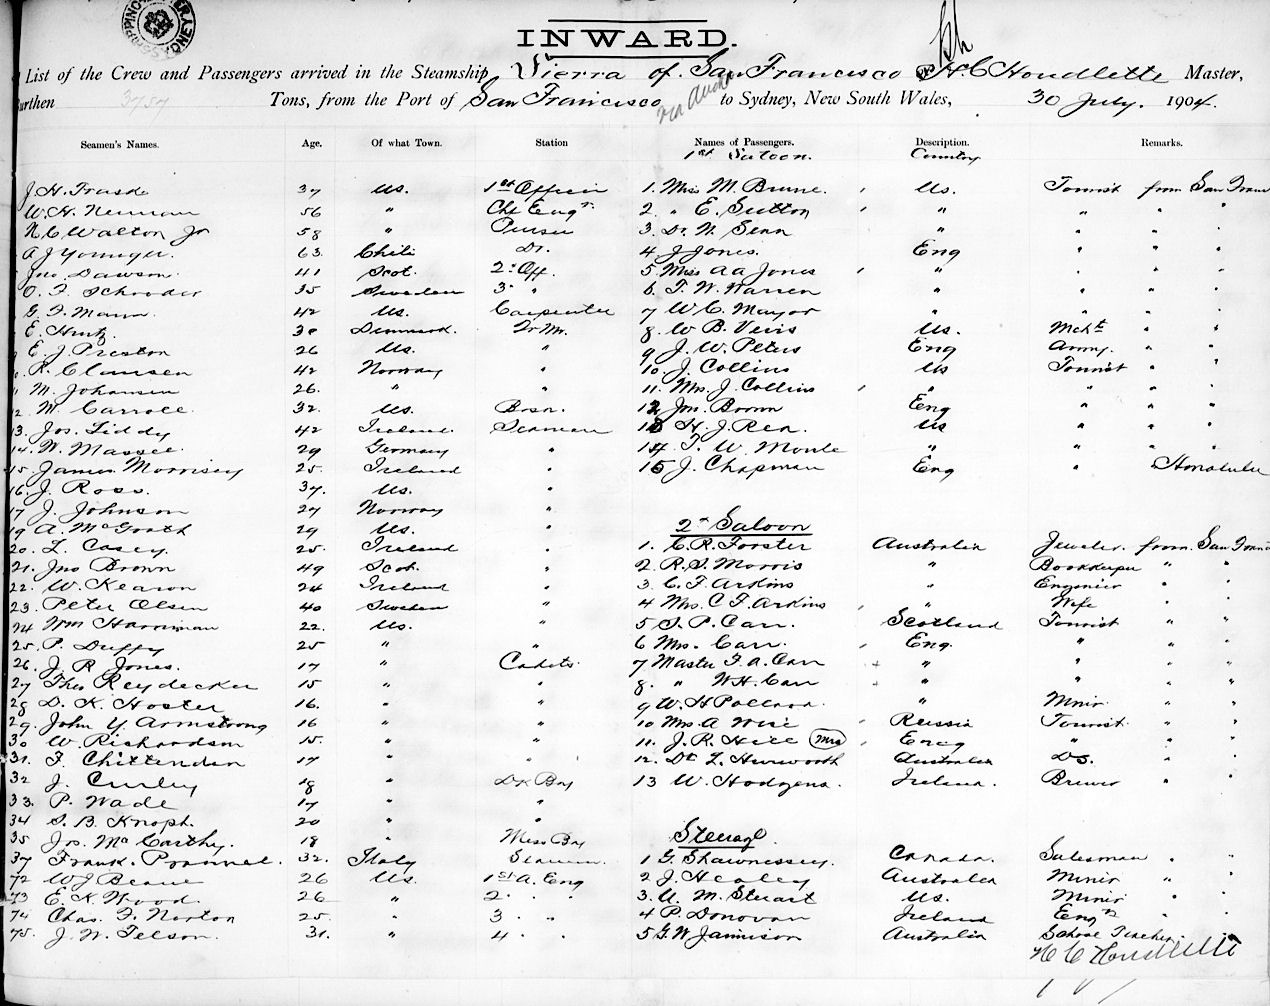 INWARD.
List of the Crew and Passengers arrived in the Steamship Sierra of San Francisco H C Houdlette Master,
Burthen 3757 Tons, from the Port of San Francisco via Auck to Sydney, New South Wales, 30 July. 1904.
Seamen's Names. Age. Of what Town. Station Names of Passengers. Description. Remarks.
1st Saloon. Country
J. H. Trask 37 Us. 1st Officer 1. Miss M. Brune. Us. Tourist from San Fran
W. H. Neuman 56 " Chf Engr. 2. " E. Sutton " " " "
N C Walton Jr 58 " Purser 3. Dr. N. Senn " " " "
A J Younger. 63. Chili Dr. 4 J Jones. Eng " " "
Jno Dawson. 41 Scot. 2d Off. 5 Miss A A Jones " . " "
O. F. Schroder 35 Sweden 3 " 6. T. W. Warren " " " "
G. F. Mann. 42 Us. Carpenter 7 W. C. Mayor " " " "
E. 38 Denmark. Qr Mr. 8. W B. Us. Mcht " "
E. J. Preston 26 Us. " 9 J. W. Peters Eng Army. " "
R. Clausen 42 Norway " 10. J. Collins Us Tourist " "
11 M. Johansen 26. " " 11. Mrs J. Collins " " " "
12. M. Carroll. 32. Us. Bosn. 12 Jno. Brown Eng " " "
13. Jos. Liddy 42 Ireland. Seaman 13 H. J. Rea. Us " " "
14. W. Massee. 29 Germany " 14 T. W. " " " "
15. James Morrisey 25. Ireland " 15 J. Chapman Eng " Honolulu
16. J. Ross. 37. Us. "
17 J. Johnson 27 Norway "
19 A. McGrath 29 Us. " 2d Saloon
20. L. Casey. 25. Ireland " 1. C. R. Forster Australia Jeweler. from San Fran
21. Jno Brown 49 Scot. " 2. R. S. Morris " Bookkeeper " "
22. W. Kearon 24 Ireland " 3. C. F. Arkins " Engineer " "
23. Peter Olsen 40 Sweden " 4 Mrs. C F. Arkins " Wife " "
24 Wm Harriman 22. Us. " 5 T. P. Carr. Scotland Tourist " "
25. P. Duffy 25 " " 6 Mrs. Carr. Eng. " " "
26. J. R. Jones. 17 " Cadets. 7 Master F. A. Carr " " " "
27 Theo Reydecker 15 " " 8. " W H. Carr " " " "
28 D. K. Hoster 16. " " 9 W. H Pollard. " Miner. " "
29. John Y. Armstrong 16 " " 10 Mrs A Wise Russia Tourist. " "
30 W. Richardson 15. " " 11. J. R. Hill (Mrs) Eng " " "
31. F. Chittenden 17 " " 12. Dr. L. Australia Do. " "
32 J. Curley 18 " Dk Boy 13 W. Hodgens. Ireland. Brewer " "
33. P. Wade 17 " "
34 S. B. Knoph. 20 " " Steerage
35 Jos. McCarthy. 18 " Mess Boy
37 Frank. 32. Italy Seaman. 1 G. Shawnessey. Canada. Salesman " "
72 W J Beane 26 Us. 1st A. Eng 2 J. Healey Australia Miner " "
73 E. K. Wood. 26 " 2 . . 3. A. M. Stewart Us. Miner " "
74 Chas. F. Norton 25. " 3 . . 4 P. Donovan Ireland Engr " "
75. J. W. Telson. 31. " 4 . . 5 G W Jamieson Australia School Teacher.
H C Houdlette